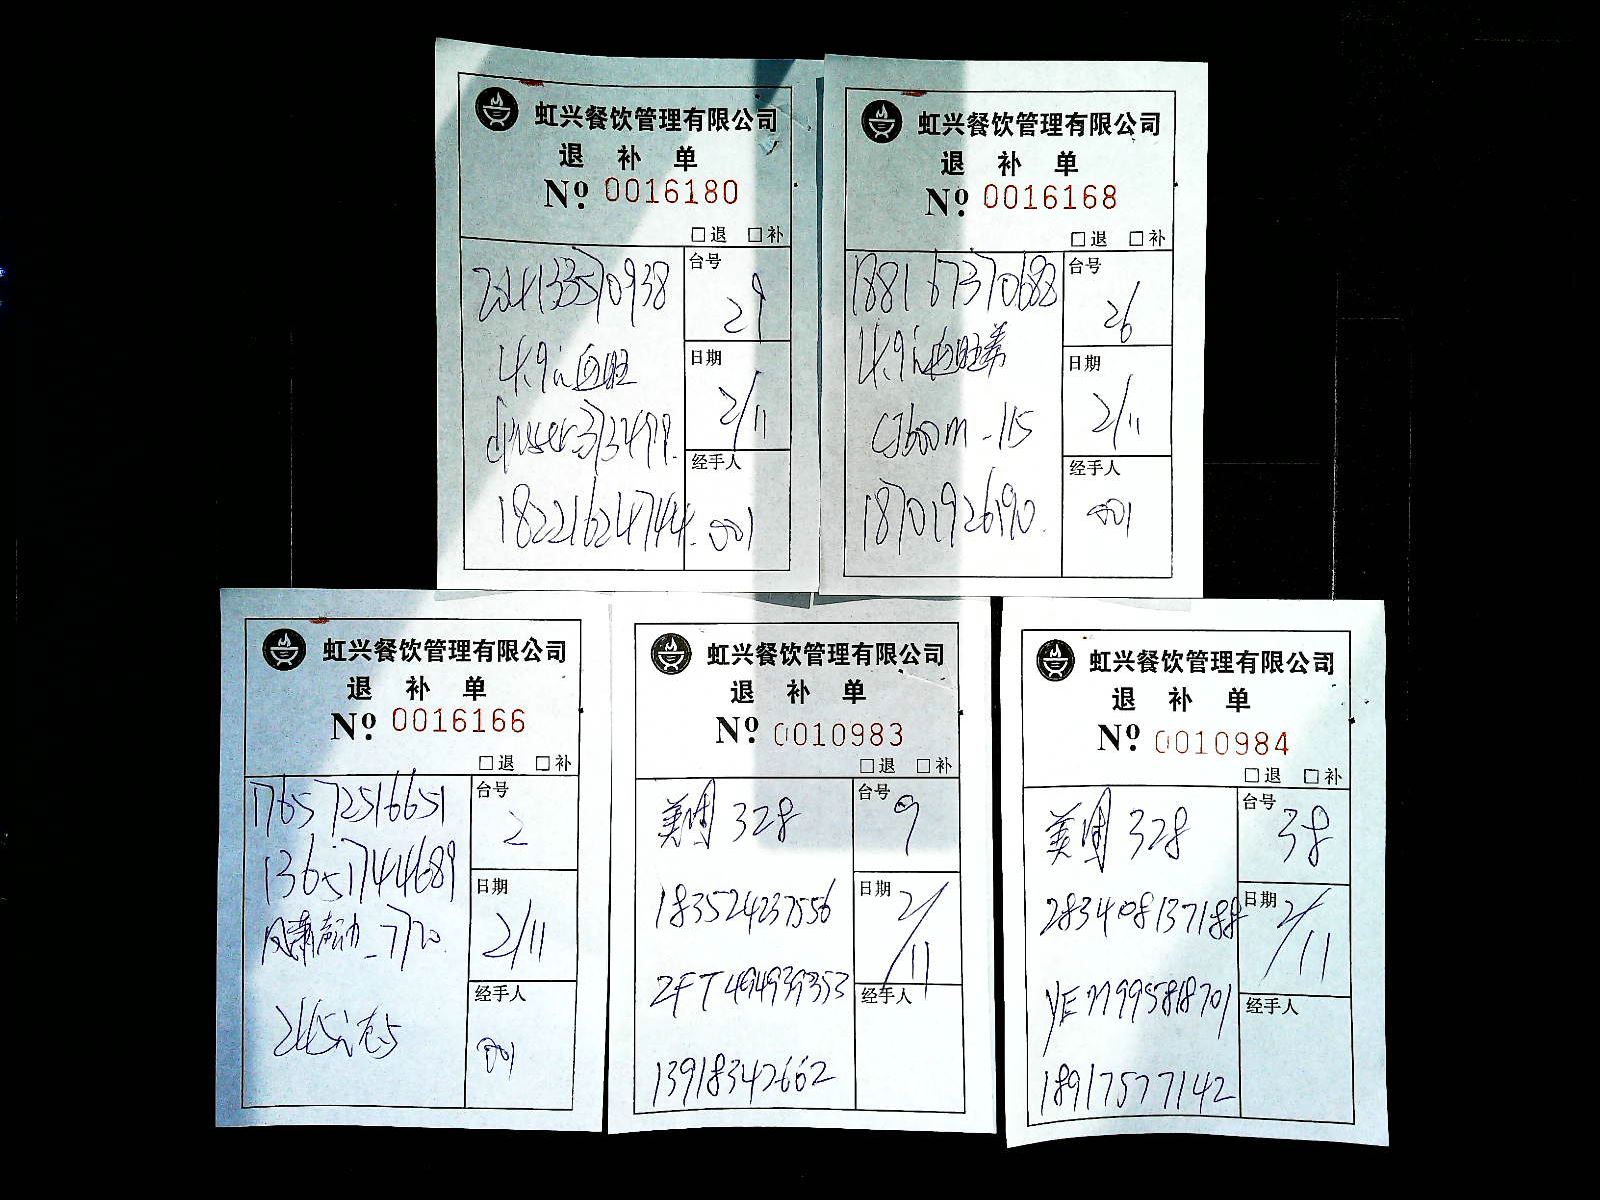 虹兴餐饮管理有限公司
退 补 单
Nº. 0016180
□退 □补
台号
29
4.9 血旺
日期
2/11
经手人
18221624744.
001
虹兴餐饮管理有限公司
退 补 单
Nº. 0016168
□退 □补
188167370688
台号
26
4.9 血旺
日期
2/11
经手人
18701926190.
001
虹兴餐饮管理有限公司
退 补 单
Nº. 0016166
□退 □补
176572516651
台号
2
13651744689
日期
2/11
经手人
001
虹兴餐饮管理有限公司
退 补 单
Nº. 0010983
□退 □补
美团 328
台号
9
183524237556
日期
2/11
ZFT494939353
经手人
13918347662
虹兴餐饮管理有限公司
退 补 单
Nº. 0010984
□退 □补
美团 328
台号
38
283408137188
日期
2/11
经手人
18917577142